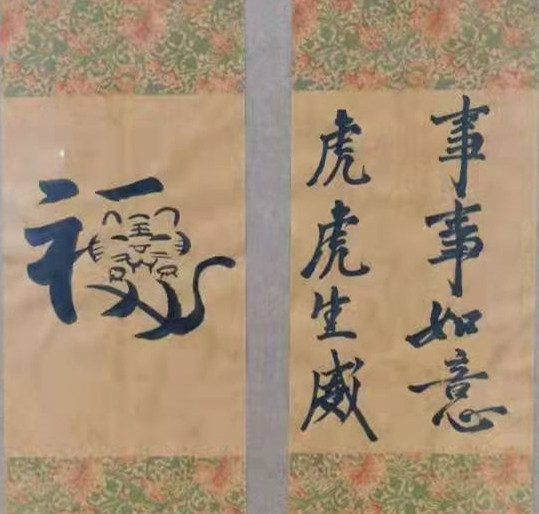 事事如意
虎虎生威
福